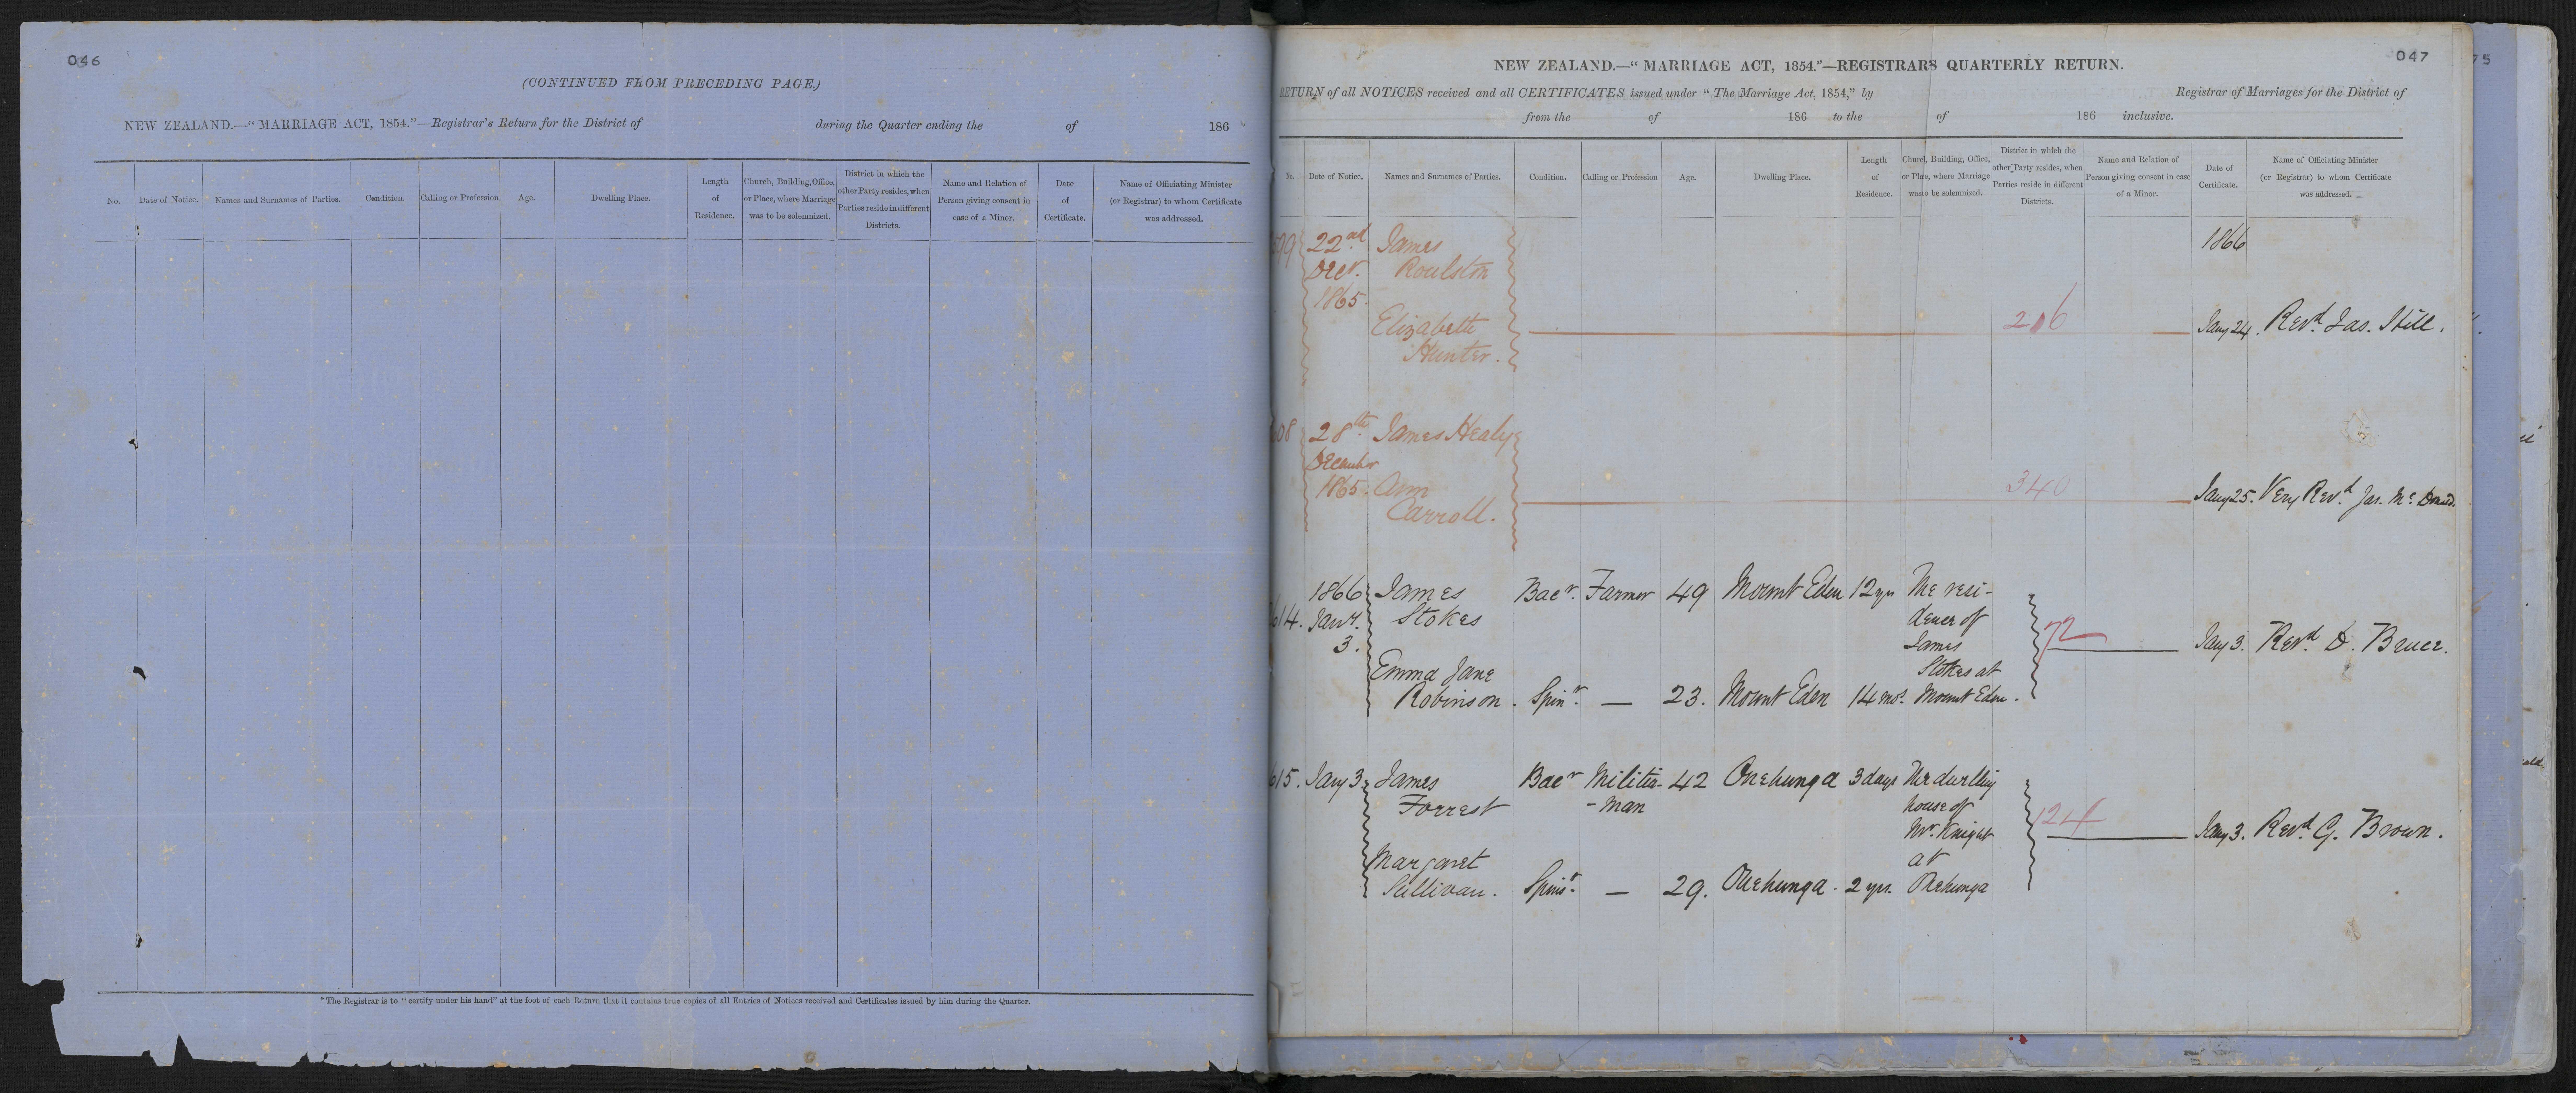 046
(CONTINUED FROM PRECEDING PAGE.)
NEW ZEALAND.—"MARRIAGE ACT, 1854."—Registrar's Return for the District of during the Quarter ending the of 186
No.
Date of Notice.
Names and Surnames of Parties.
Condition.
Calling or Profession
Age.
Dwelling Place.
Length
of
Residence.
Church, Building, Office,
or Place, where Marriage
was to be solemnized.
District in which the
other Party resides, when
Parties reside in different
Districts.
Name and Relation of
Person giving consent in
case of a Minor.
Date
of
Certificate.
Name of Officiating Minister
(or Registrar) to whom Certificate
was addressed.
*The Registrar is to "certify under his hand" at the foot of each Return that it contains true copies of all Entries of Notices received and Certificates issued by him during the Quarter.
047
NEW ZEALAND.—"MARRIAGE ACT, 1854."—REGISTRARS QUARTERLY RETURN.
RETURN of all NOTICES received and all CERTIFICATES issued under "The Marriage Act, 1854," by Registrar of Marriages for the District of
from the of 186 to the of 186 inclusive.
No.
Date of Notice.
Names and Surnames of Parties.
Condition.
Calling or Profession
Age.
Dwelling Place.
Length
of
Residence.
Church, Building, Office,
or Place, where Marriage
was to be solemnized.
District in which the
other Party resides, when
Parties reside in different
Districts.
Name and Relation of
Person giving consent in case
of a Minor.
Date of
Certificate.
Name of Officiating Minister
(or Registrar) to whom Certificate
was addressed.
22nd James 1866
Decr. Roulston
1865.
Elizabeth 206 Jany 24. Revd. Jas. Hill.
Hunter.
28th James Healy
December
1865. Ann 340 Jany 25. Very Revd. Jas. Mc. Donald.
Carroll.
1866 James Bacr. Farmer 49 Mount Eden 12 yrs The resi-
614. Jany. Stokes dence of
3. James 72 Jany 3. Revd. D. Bruce.
Emma Jane Stokes at
Robinson. Spinr. — 23. Mount Eden 14 mos. Mount Eden.
615. Jany 3. James Bacr Militia- 42 Onehunga 3 days The dwelling
Forrest -man house of
Mr. Knight Jany 3. Revd. G. Brown.
Margaret at
Sullivan. Spinsr. — 29. Onehunga. 2 yrs. Onehunga
75